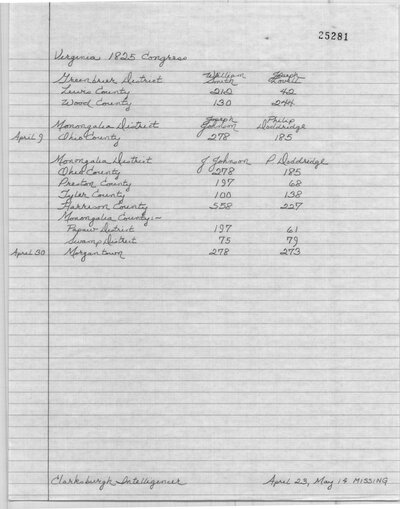 25281
Virginia 1825 Congress
Greenbrier District William Smith Joseph Lovell
Lewis County 212 42
Wood County 130 244
Monongalia District Joseph Johnson Philip Doddridge
April 9 Ohio County 278 185
Monongalia District J Johnson P Doddridge
Ohio County 278 185
Preston County 197 68
Tyler County 100 138
Harrison County 558 227
Monongalia County:-
Papaw District 197 61
Swamp District 75 79
April 30 Morgantown 278 273
Clarksburgh Intelligencer April 23, May 14 MISSING